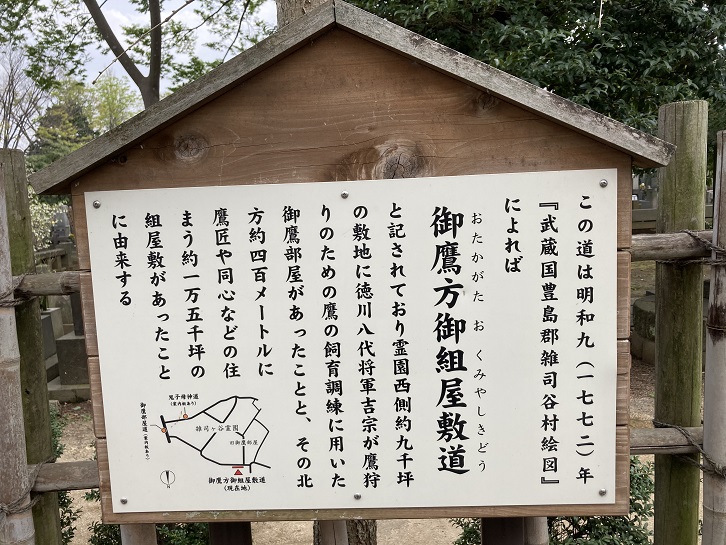 この道は明和九（一七七二）年
『武蔵国豊島郡雑司谷村絵図』
によれば
おたかがた お くみやしきどう
御鷹方御組屋敷道
と記されており霊園西側約九千坪
の敷地に徳川八代将軍吉宗が鷹狩
りのための鷹の飼育調練に用いた
御鷹部屋があったことと、その北
方約四百メートルに
鷹匠や同心などの住
まう約一万五千坪の
組屋敷があったこと
に由来する
鬼子母神道
（案内板あり）
御鷹部屋道（案内板あり）
雑司ヶ谷霊園
旧御鷹部屋
N
御鷹方御組屋敷道
（現在地）